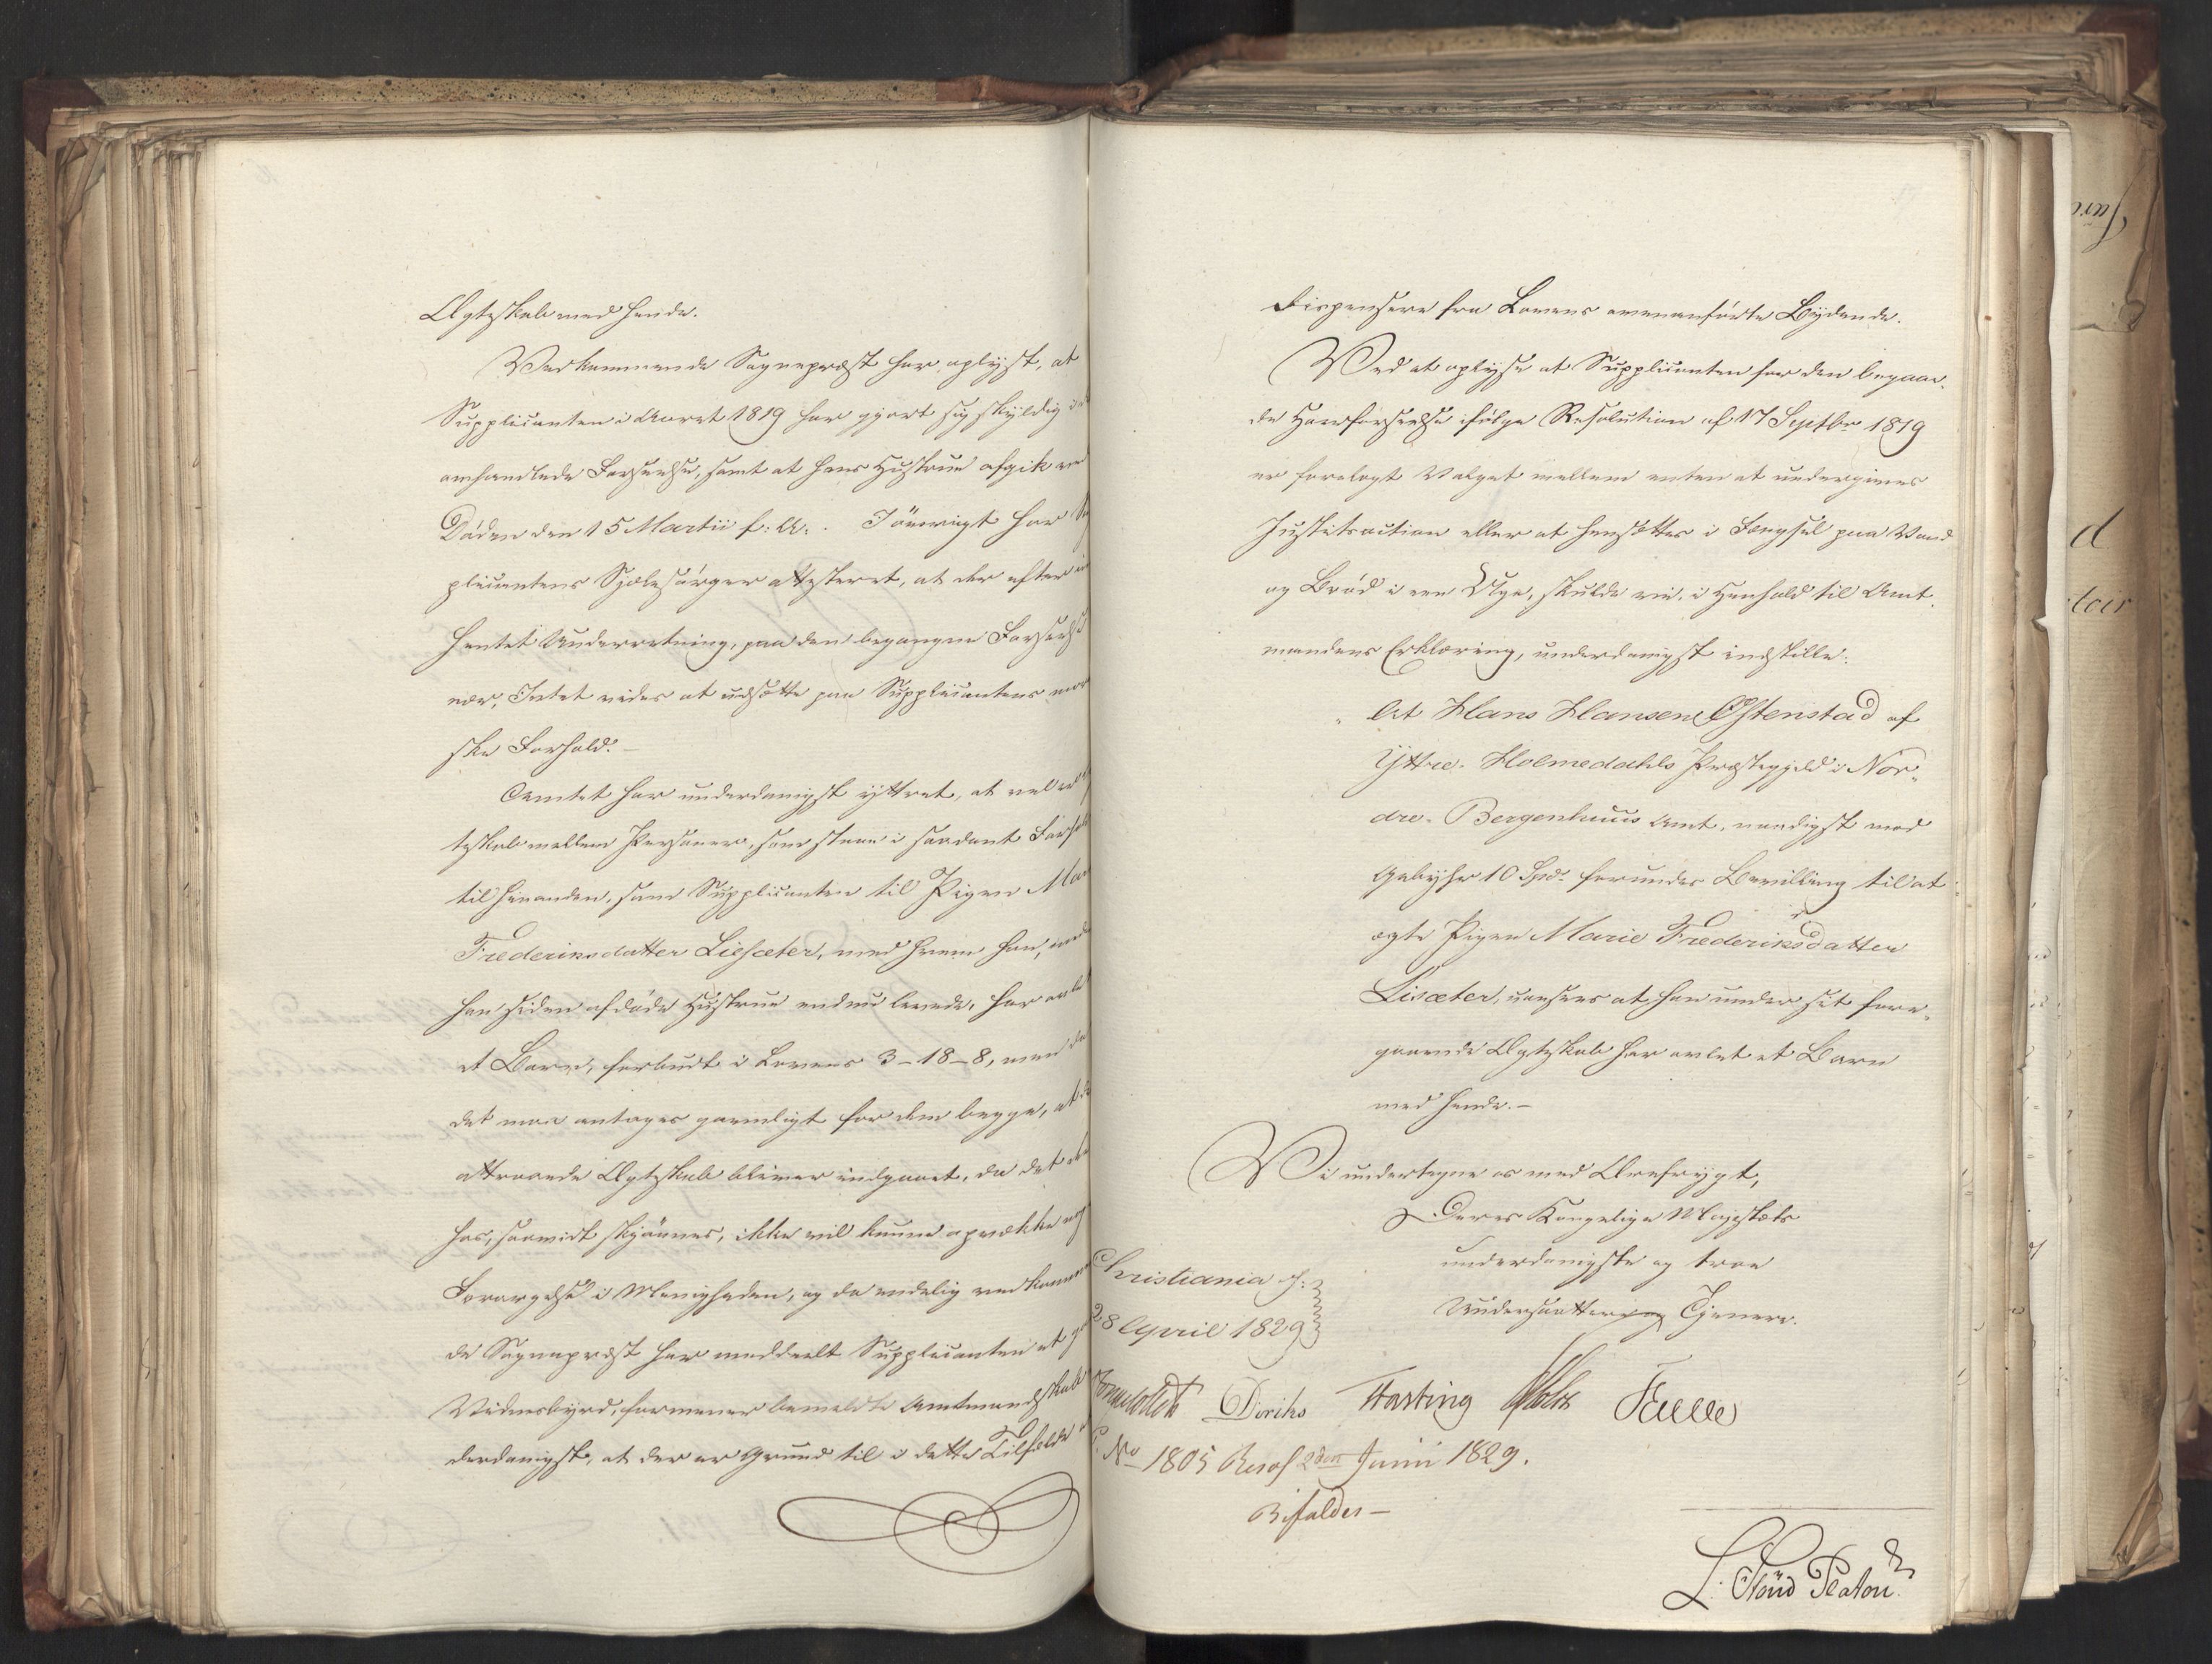 Ægteskab med hende.
Vedkommende Sognepræst har oplyst, at
Supplicanten i Aaret 1819 har gjort sig skyldig i
omhandlede Forseelse, samt at hans Hustrue afgik ved
Døden den 15 Martii f: A:. I øvrigt har Sup
plicantens Sjælesørger attesteret, at der efter ind
hentet Underretning, paa den begangne Forseelse
nær, Intet vides at udsætte paa Supplicantens mora
ske Forhold. —
Amtet har underdanigst yttret, at vel er Æg
teskab mellem Personer, som staae i saadant Forhold
til hinanden, som Supplicanten til Pigen Mar
Frederiksdatter Liesæter, med hvem han, meden
han siden afdøde Hustrue endnu levede, har avlet
et Barn, forbudt i Lovens 3-18-8, men da
det maa antages gavnligt for dem begge, at de
attraaede Ægteskab bliver indgaaet, da det der
hos, saavidt skjønnes, ikke vil kunne opvække nog
Forargelse i Menigheden, og da endelig vedkommen
de Sognepræst har meddeelt Supplicanten et godt
Vidnesbyrd, formener bemeldte Amtmandskab
derdanigst, at der er Grund til i dette Tilfælde
dispensere fra Lovens ovenanførte Bydende.
Ved at oplyse at Supplicanten for den begaae-
de Hoerforseelse ifølge Resolution af 17 Septbr 1819
er forelagt Valget mellem enten at undergives
Justitsaction eller at hensættes i Fængsel paa Vand
og Brød i een Uge, skulde vi, i Henhold til Amt-
mandens Erklæring, underdanigst indstille:
" At Hans Hansen Østenstad af
Yttre-Holmedahls Præstegjeld i Nor-
dre-Bergenhuus Amt, naadigst mod
Gebyhr 10 Spd. forundes Bevilling til at
ægte Pigen Marie Frederiksdatter
Lisæter, uanseet at han under sit fore-
gaaende Ægteskab har avlet et Barn
med hende. —
Vi undertegne os med Ærefrygt,
Deres Kongelige Majestæts
underdanigste og troe
Undersaatter og Tjenere.
Christiania d:
28 April 1829
Diriks Hasting Holst
No 1805 Resol 2den Junii 1829.
Bifaldes —
L: Stoud Platou